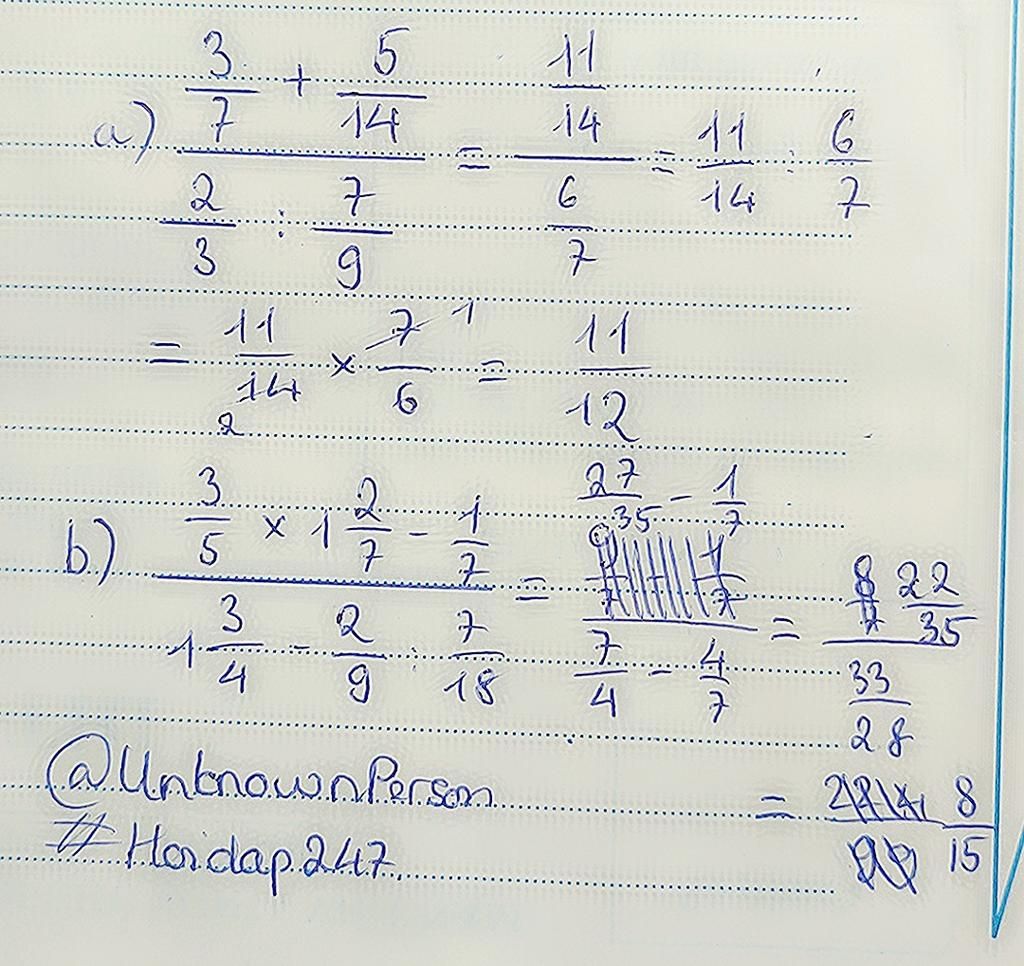 a) (3/7 + 5/14)/(2/3 : 7/9) = (11/14)/(6/7) = 11/14 : 6/7
= 11/14 2 × 7/6 1 = 11/12
b) (3/5 × 1 2/7 - 1/7)/(1 3/4 - 2/9 : 7/18) = (27/35 - 1/7)/(7/4 - 4/7) = (22/35)/(33/28)
= 8/15
@UnknownPerson
#Hoidap247.